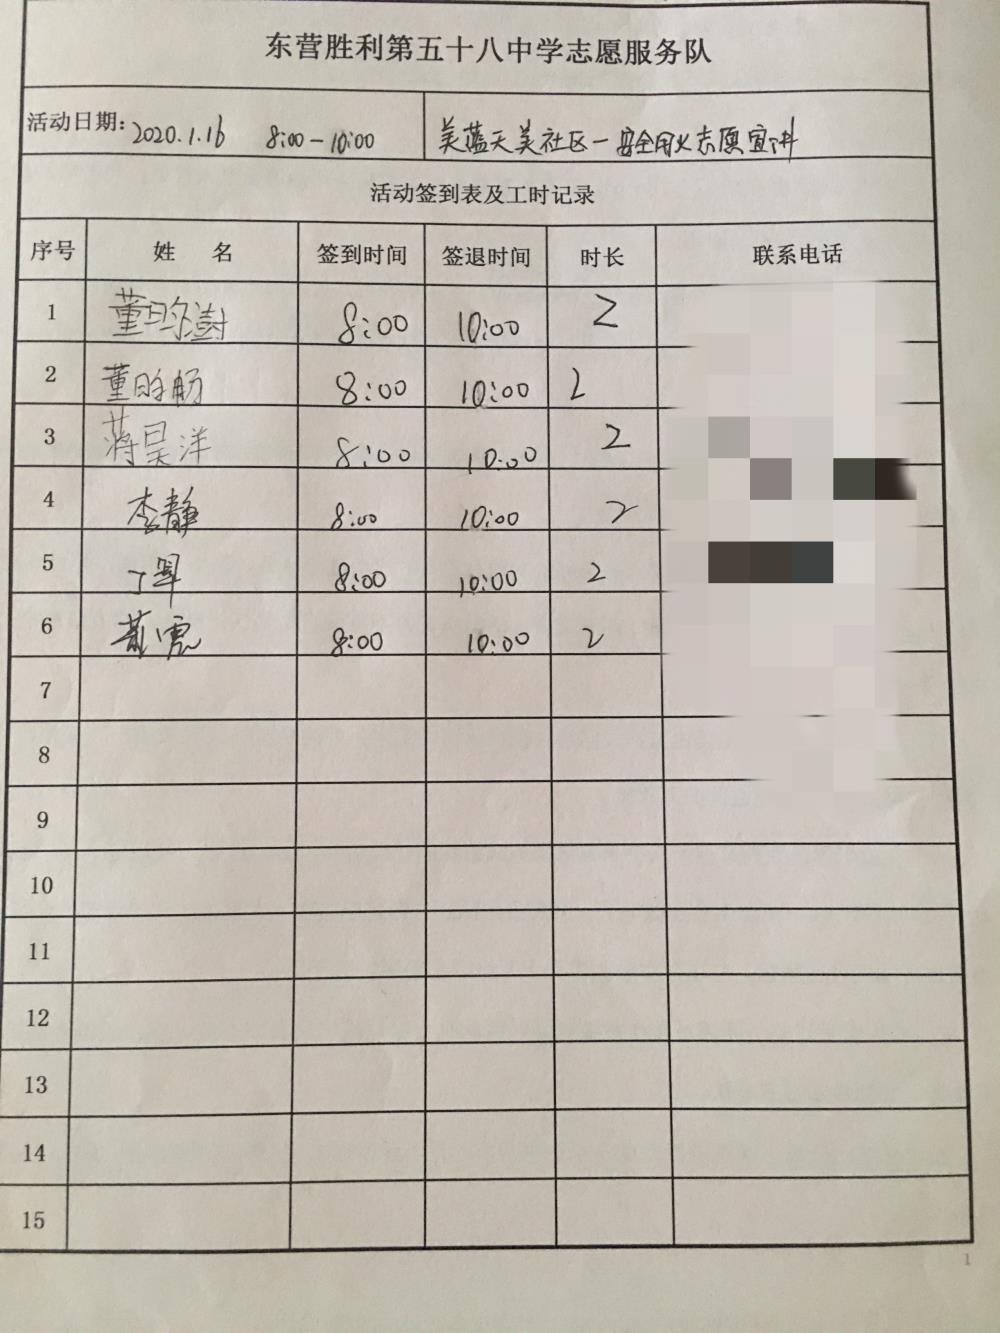 东营胜利第五十八中学志愿服务队
活动日期: 2020.1.16 8:00-10:00 美蓝天美社区-安全用火志愿宣讲
活动签到表及工时记录
序号 姓 名 签到时间 签退时间 时长 联系电话
1 董 8:00 10:00 2
2 董 8:00 10:00 2
3 蒋昊洋 8:00 10:00 2
4 李静 8:00 10:00 2
5 丁 8:00 10:00 2
6 董虎 8:00 10:00 2
7
8
9
10
11
12
13
14
15
1